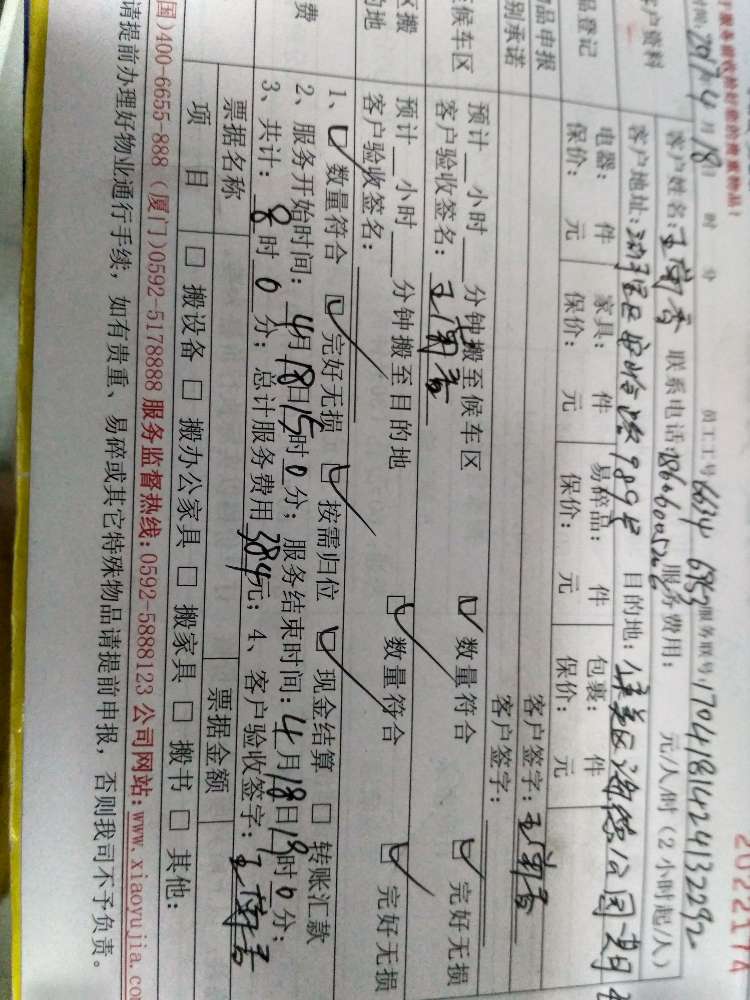 202217A
员工工号 6634 6953 服务账号:1704181424132292
时间: 2017年4月18日 时 分
客户资料
客户姓名:王 联系电话: 服务费用: 元/人/时(2小时起/人)
客户地址: 989号 目的地:集美区
品登记
电器: 件 家具: 件 易碎品: 件 包裹: 件
保价: 元 保价: 元 保价: 元 保价: 元
物品申报
客户签字:王
别承诺
客户签字:
至候车区
预计 小时 分钟搬至候车区 数量符合 完好无损
客户验收签名:王
区搬
的地
预计 小时 分钟搬至目的地 数量符合 完好无损
客户验收签名:
费
1、 数量符合 完好无损 按需归位 现金结算 转账汇款
2、服务开始时间:4月18日15时0分; 服务结束时间:4月18日19时0分;
3、共计:8时0分; 总计服务费用384元; 4、客户验收签字:王
票据名称 票据金额
项目 搬设备 搬办公家具 搬家具 搬书 其他:
国)400-6655-888(厦门)0592-5178888 服务监督热线:0592-5888123 公司网站:www.xiaoyujia.co
请提前办理好物业通行手续,如有贵重、易碎或其它特殊物品请提前申报,否则我司不予负责。